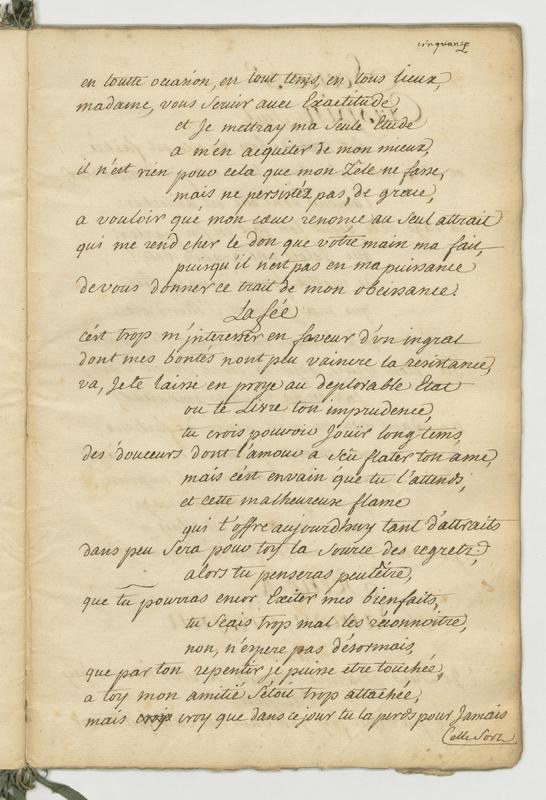 cinquante
en toutte occasion, en tout tems, en tous lieux,
madame, vous servir avec Exactitude
et Je mettray ma seule Etude
a m'en acquiter de mon mieux,
il n'est rien pour cela que mon Zele ne fasse,
mais ne persistéz pas, de grace,
a vouloir que mon coeur renonce au seul attrait
qui me rend cher le don que votre main ma fait,
puisqu'il n'est pas en ma puissance
de vous donner ce trait de mon obeissance.
La fée
c'est trop m'jnteresser en faveur d'vn ingrat
dont mes bontés n'ont peu vaincre la resistance,
va, Je te laisse en proye au deplorable Etat
ou te Livre ton imprudence,
tu crois pouvoir Joüir long tems,
des douceurs dont l'amour a sçû flater ton ame,
mais c'est envain que tu l'attends,
et cette malheureuse flame
qui t'offre aujourdhuy tant d'attraits
dans peu sera pour toy la source des regretz;
alors tu penseras peutêtre,
que tu pourras encor Exciter mes bienfaits,
tu scais trop mal les réconnoitre,
non, n'espere pas désormais,
que par ton repentir je puisse etre touchée,
a toy mon amitié s'étoit trop attachée,
mais croy que dans ce jour tu la perds pour Jamais
Elle sort